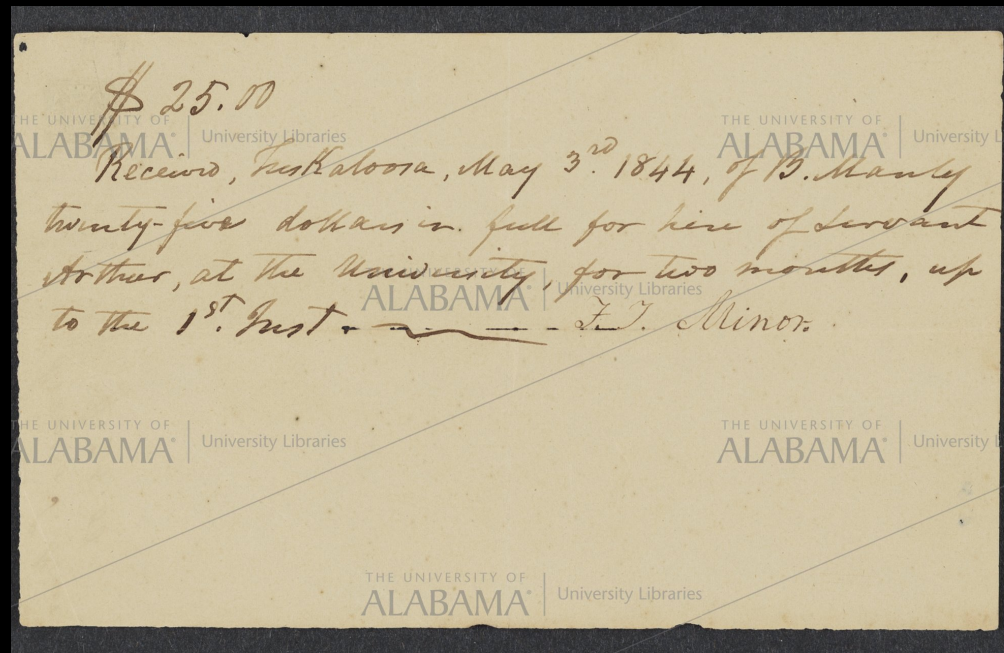 $ 25.00
Received, Tuskaloosa, May 3rd. 1844, of B. Manly
twenty-five dollars in full for hire of Servant
Arthur, at the University, for two months, up
to the 1st. Inst. F. T. Minor.
THE UNIVERSITY OF ALABAMA University Libraries
THE UNIVERSITY OF ALABAMA University Libraries
THE UNIVERSITY OF ALABAMA University Libraries
THE UNIVERSITY OF ALABAMA University Libraries
THE UNIVERSITY OF ALABAMA University Libraries
THE UNIVERSITY OF ALABAMA University Libraries